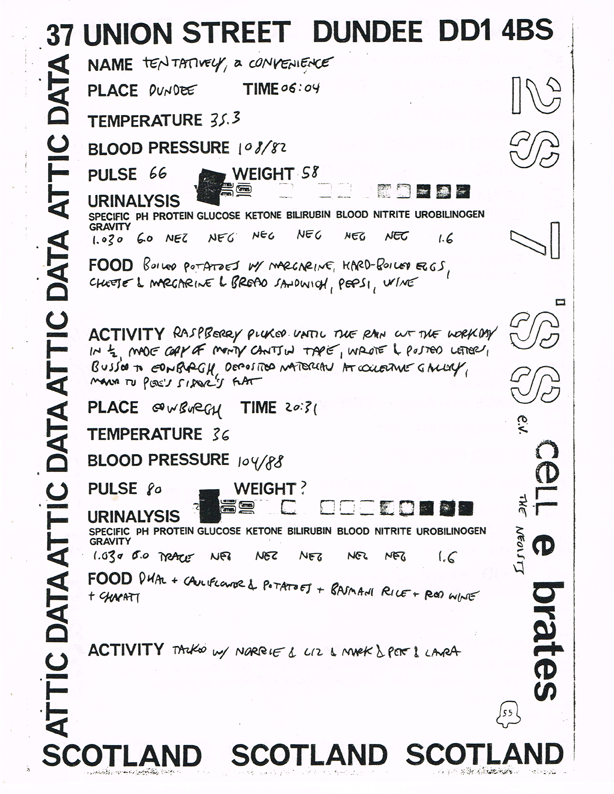 37 UNION STREET DUNDEE DD1 4BS
ATTIC DATA ATTIC DATA ATTIC DATA ATTIC DATA ATTIC DATA
NAME tENTATIVELY, a CONVENIENCE
PLACE DUNDEE TIME 06:04
TEMPERATURE 35.3
BLOOD PRESSURE 108/82
PULSE 66 WEIGHT 58
URINALYSIS
SPECIFIC PH PROTEIN GLUCOSE KETONE BILIRUBIN BLOOD NITRITE UROBILINOGEN
GRAVITY
1.030 6.0 NEG NEG NEG NEG NEG NEG 1.6
FOOD BOILED POTATOES W/ MARGARINE, HARD-BOILED EGGS,
CHEESE & MARGARINE & BREAD SANDWICH, PEPSI, WINE
ACTIVITY RASPBERRY PICKED UNTIL THE RAIN CUT THE WORKDAY
IN ½, MADE COPY OF MONTY CANTSIN TAPE, WROTE & POSTED LETTERS,
BUSSED TO EDINBURGH, DEPOSITED MATERIAL AT COLLECTIVE GALLERY,
TO PETE'S SISTER'S FLAT
PLACE EDINBURGH TIME 20:31
TEMPERATURE 36
BLOOD PRESSURE 104/88
PULSE 80 WEIGHT ?
URINALYSIS
SPECIFIC PH PROTEIN GLUCOSE KETONE BILIRUBIN BLOOD NITRITE UROBILINOGEN
GRAVITY
1.030 6.0 TRACE NEG NEG NEG NEG NEG 1.6
FOOD DHAL + CAULIFLOWER & POTATOES + BASMATI RICE + RED WINE
+ CHAPATI
ACTIVITY TALKED W/ NORRIE & LIZ & MARK & PETE & LAURA
2S 7'SS
e.V.
cELL e brates
THE NEOISTS
55
SCOTLAND SCOTLAND SCOTLAND